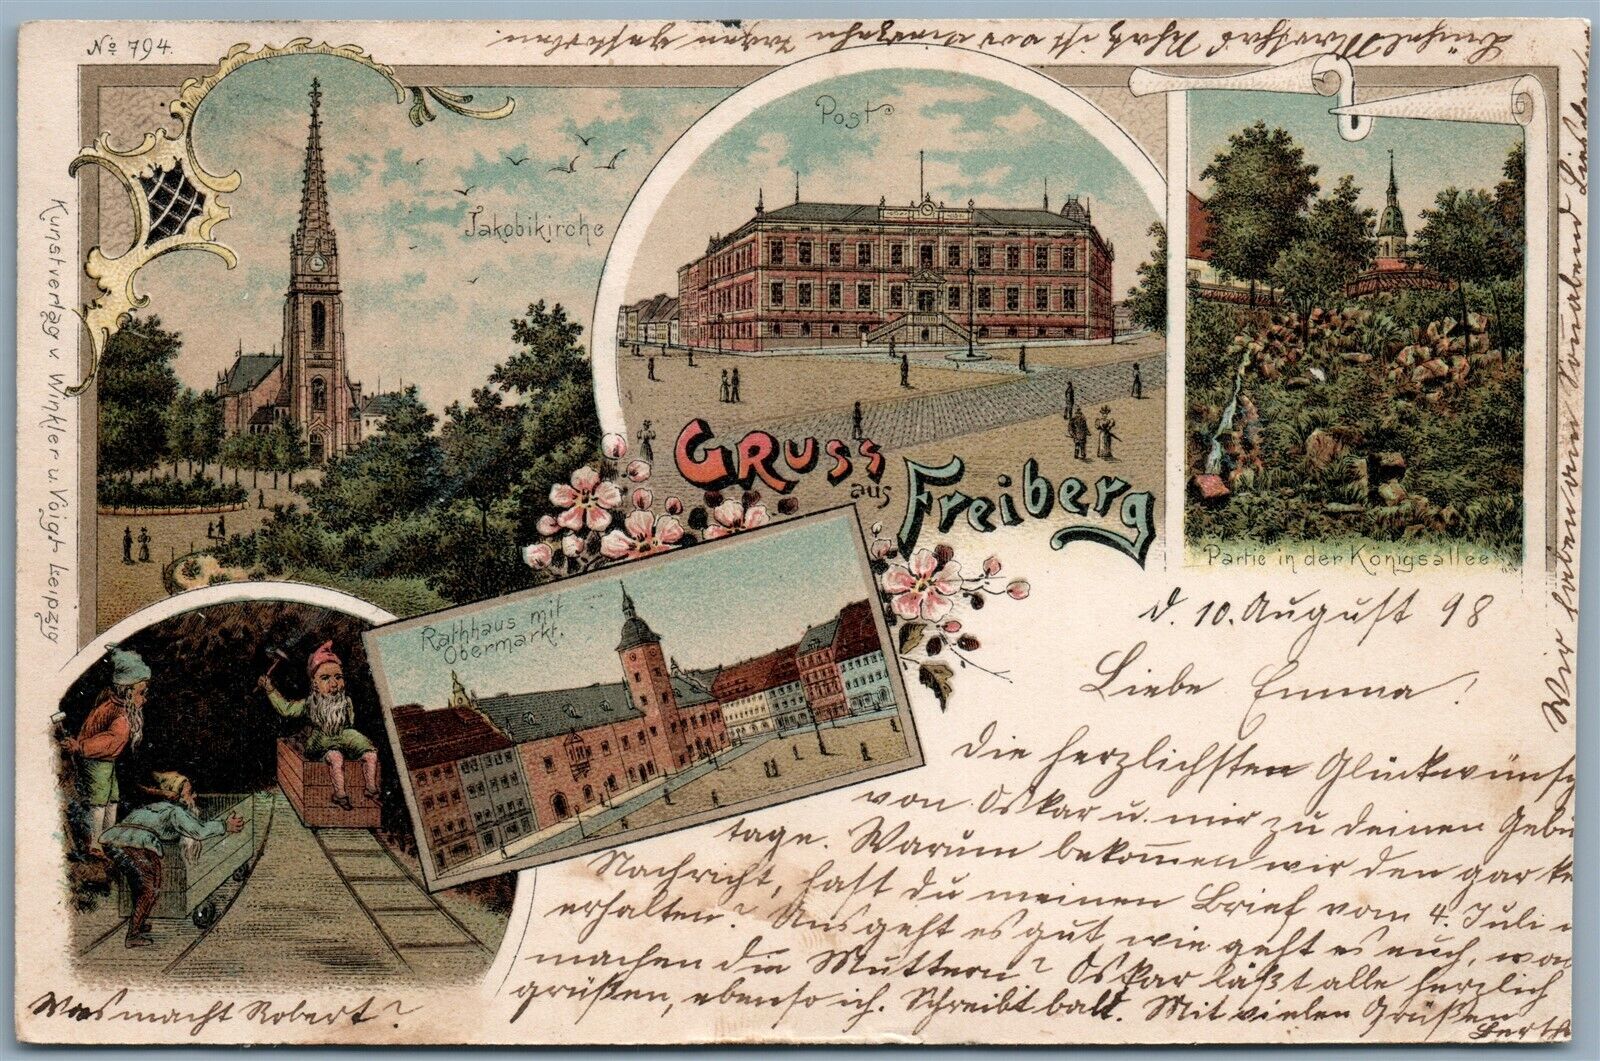 No 794.
Kunstverlag v. Winkler u. Voigt Leipzig
Jakobikirche
Post
Partie in der Königsallee
Gruss
aus
Freiberg
Rathhaus mit
Obermarkt.
d. 10. August 98
Liebe Emma!
Die herzlichsten Glückwünsch
von Oskar u. mir zu deinen Gebu
tage. Warum bekommen wir den gar ke
Nachricht, hast du meinen Brief vom 4. Juli
erhalten? Uns geht es gut, wie geht es euch, was
machen die Muttern? Oskar läßt alle herzlich
grüßen, ebenso ich. Schreibt bald. Mit vielen Grüßen
Berth
Was macht Robert?
Wir haben am Sonnabend
ist vor vierzehn Tagen gestorben.